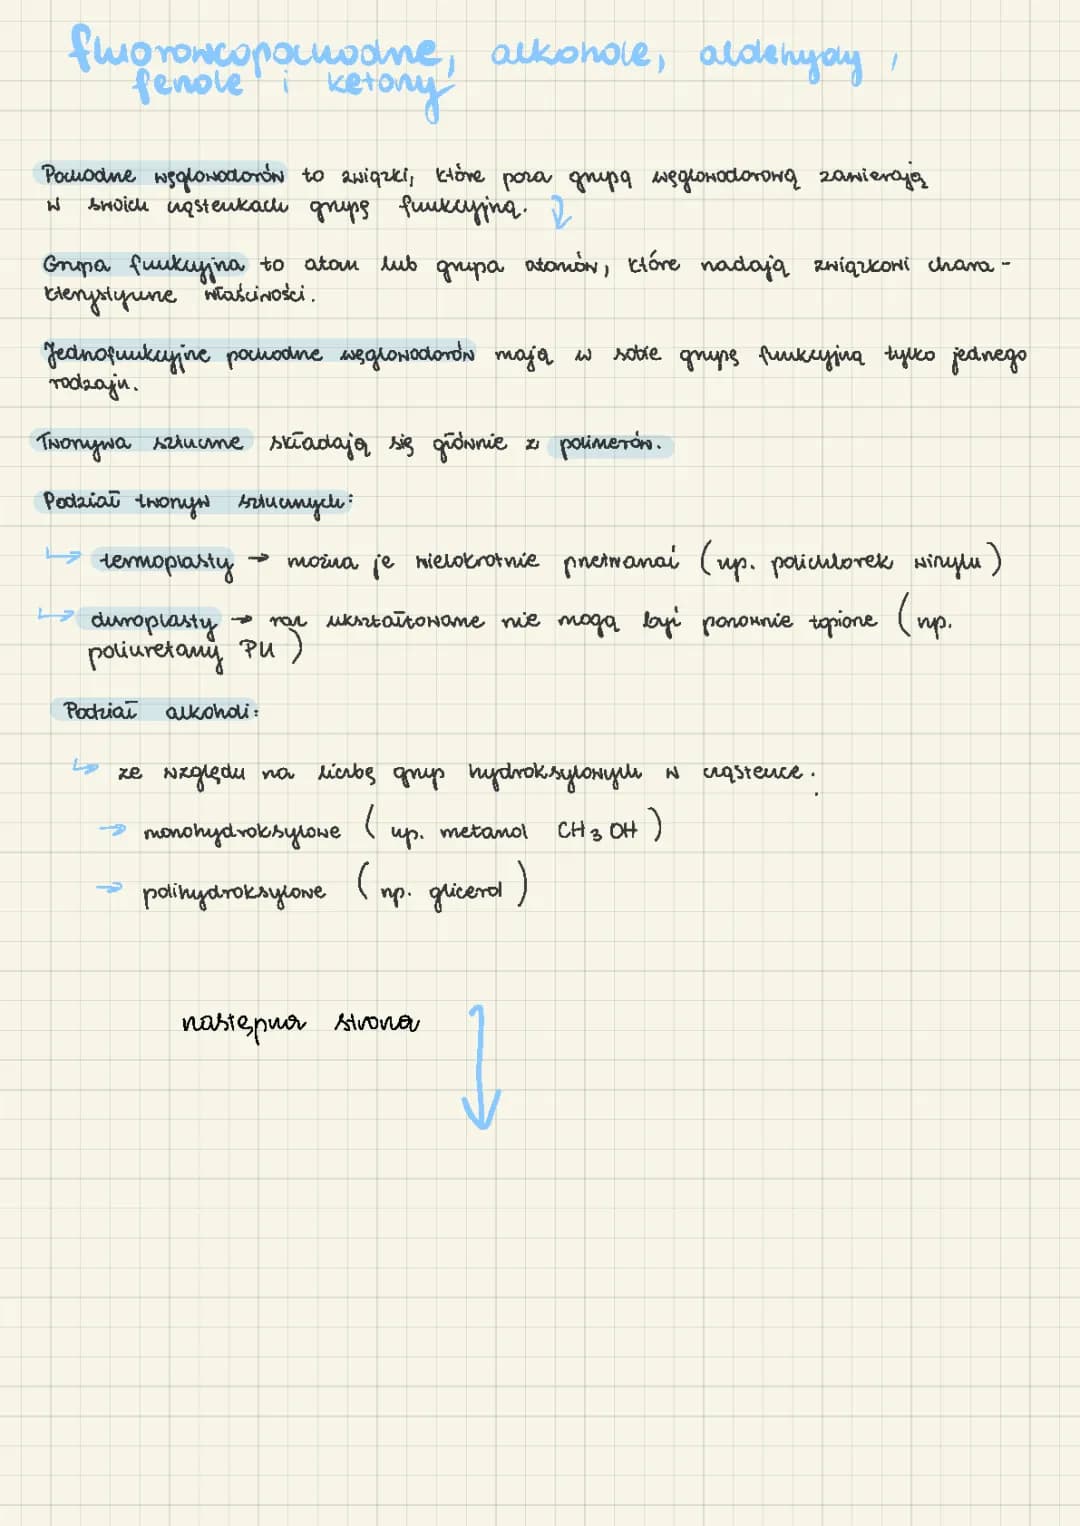 fluorowcopochodne, alkohole, aldehydy,
fenole i ketony
Pochodne węglowodorów to związki, które poza grupą węglowodorową zawierają
w swoich cząsteczkach grupę funkcyjną.
Grupa funkcyjna to atom lub grupa atomów, które nadają związkowi chara-
kterystyczne właściwości.
Jednofunkcyjne pochodne węglowodorów mają w sobie grupę funkcyjną tylko jednego
rodzaju.
Tworzywa sztuczne składają się głównie z polimerów.
Podział tworzyw sztucznych:
↳ termoplasty → można je wielokrotnie przetwarzać (np. polichlorek winylu)
↳ duroplasty → raz ukształtowane nie mogą być ponownie topione (np.
poliuretany PU)
Podział alkoholi:
↳ ze względu na liczbę grup hydroksylowych w cząsteczce:
→ monohydroksylowe (np. metanol CH3OH)
→ polihydroksylowe (np. glicerol)
następna strona ↓